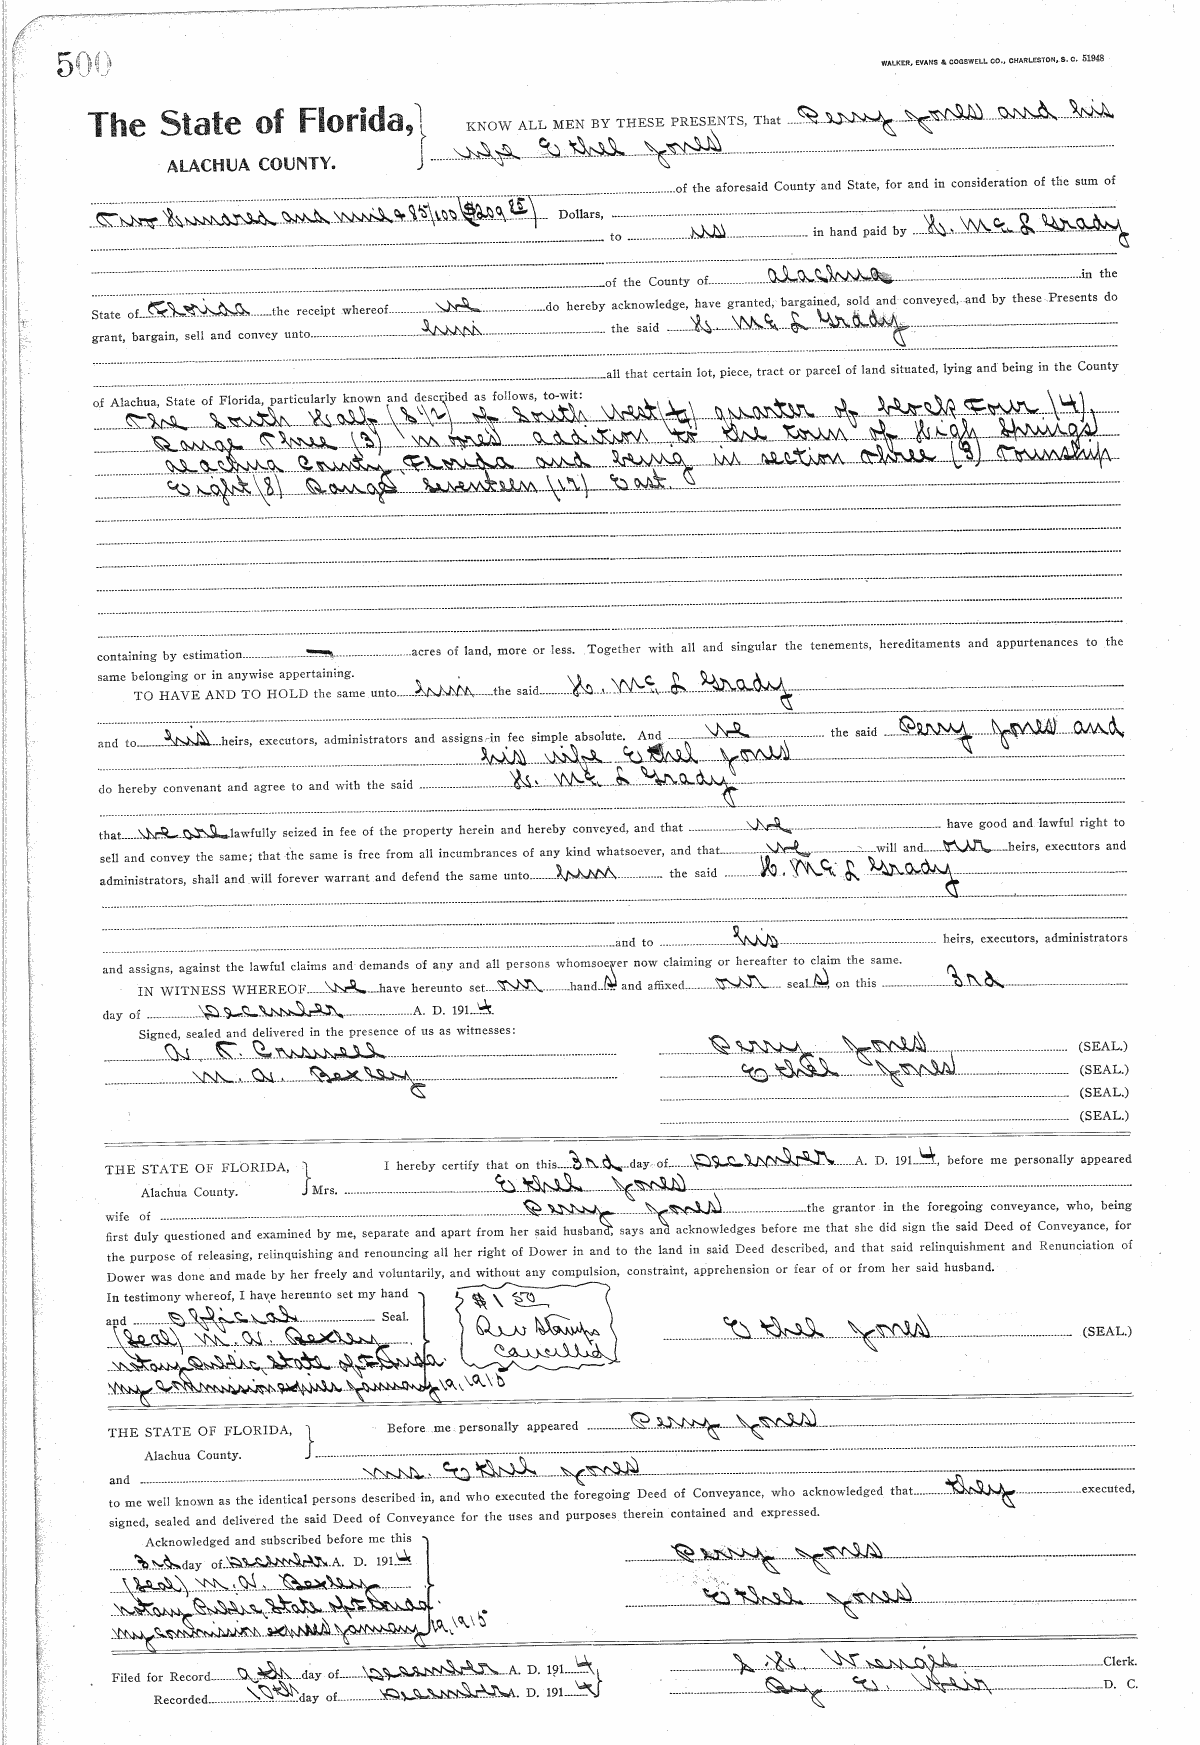 500
WALKER, EVANS & COGSWELL CO., CHARLESTON, S. C. 51948
The State of Florida, KNOW ALL MEN BY THESE PRESENTS, That Perry Jones and his
ALACHUA COUNTY. wife Ethel Jones
of the aforesaid County and State, for and in consideration of the sum of
Two Hundred and nine & 85/100 ($209 85) Dollars,
to us in hand paid by H. Mc L Grady
of the County of Alachua in the
State of Florida the receipt whereof we do hereby acknowledge, have granted, bargained, sold and conveyed, and by these Presents do
grant, bargain, sell and convey unto him the said H. Mc L Grady
all that certain lot, piece, tract or parcel of land situated, lying and being in the County
of Alachua, State of Florida, particularly known and described as follows, to-wit:
The South Half (S 1/2) of South West (1/4) quarter of block Four (4),
Range Three (3) moores addition to the town of High Springs
Alachua County, Florida and being in section three (3) Township
Eight (8) Range seventeen (17) East.
containing by estimation — acres of land, more or less. Together with all and singular the tenements, hereditaments and appurtenances to the
same belonging or in anywise appertaining.
TO HAVE AND TO HOLD the same unto him the said H. Mc L Grady
and to his heirs, executors, administrators and assigns in fee simple absolute. And we the said Perry Jones and
his wife Ethel Jones
do hereby convenant and agree to and with the said H. Mc L Grady
that we are lawfully seized in fee of the property herein and hereby conveyed, and that we have good and lawful right to
sell and convey the same; that the same is free from all incumbrances of any kind whatsoever, and that we will and our heirs, executors and
administrators, shall and will forever warrant and defend the same unto him the said H. Mc L Grady
and to his heirs, executors, administrators
and assigns, against the lawful claims and demands of any and all persons whomsoever now claiming or hereafter to claim the same.
IN WITNESS WHEREOF we have hereunto set our hand s and affixed our seal s, on this 3rd
day of December A. D. 191 4.
Signed, sealed and delivered in the presence of us as witnesses:
A. T. Criswell Perry Jones (SEAL.)
M. A. Bexley Ethel Jones (SEAL.)
(SEAL.)
(SEAL.)
THE STATE OF FLORIDA, I hereby certify that on this 3rd day of December A. D. 191 4, before me personally appeared
Alachua County. Mrs. Ethel Jones
wife of Perry Jones the grantor in the foregoing conveyance, who, being
first duly questioned and examined by me, separate and apart from her said husband, says and acknowledges before me that she did sign the said Deed of Conveyance, for
the purpose of releasing, relinquishing and renouncing all her right of Dower in and to the land in said Deed described, and that said relinquishment and Renunciation of
Dower was done and made by her freely and voluntarily, and without any compulsion, constraint, apprehension or fear of or from her said husband.
In testimony whereof, I have hereunto set my hand
and official Seal.
(Seal) M. A. Bexley
Notary Public, State of Florida
My commission expires January 19, 1915
$1 50
Rev Stamps
Cancelled
Ethel Jones (SEAL.)
THE STATE OF FLORIDA, Before me personally appeared Perry Jones
Alachua County.
and Mrs. Ethel Jones
to me well known as the identical persons described in, and who executed the foregoing Deed of Conveyance, who acknowledged that they executed,
signed, sealed and delivered the said Deed of Conveyance for the uses and purposes therein contained and expressed.
Acknowledged and subscribed before me this
3rd day of December A. D. 191 4 Perry Jones
(Seal) M. A. Bexley
Notary Public, State of Florida. Ethel Jones
My commission expires January 19, 1915
Filed for Record 9th day of December A. D. 191 4 Clerk.
Recorded 10th day of December A. D. 191 4 By E. Weir D. C.